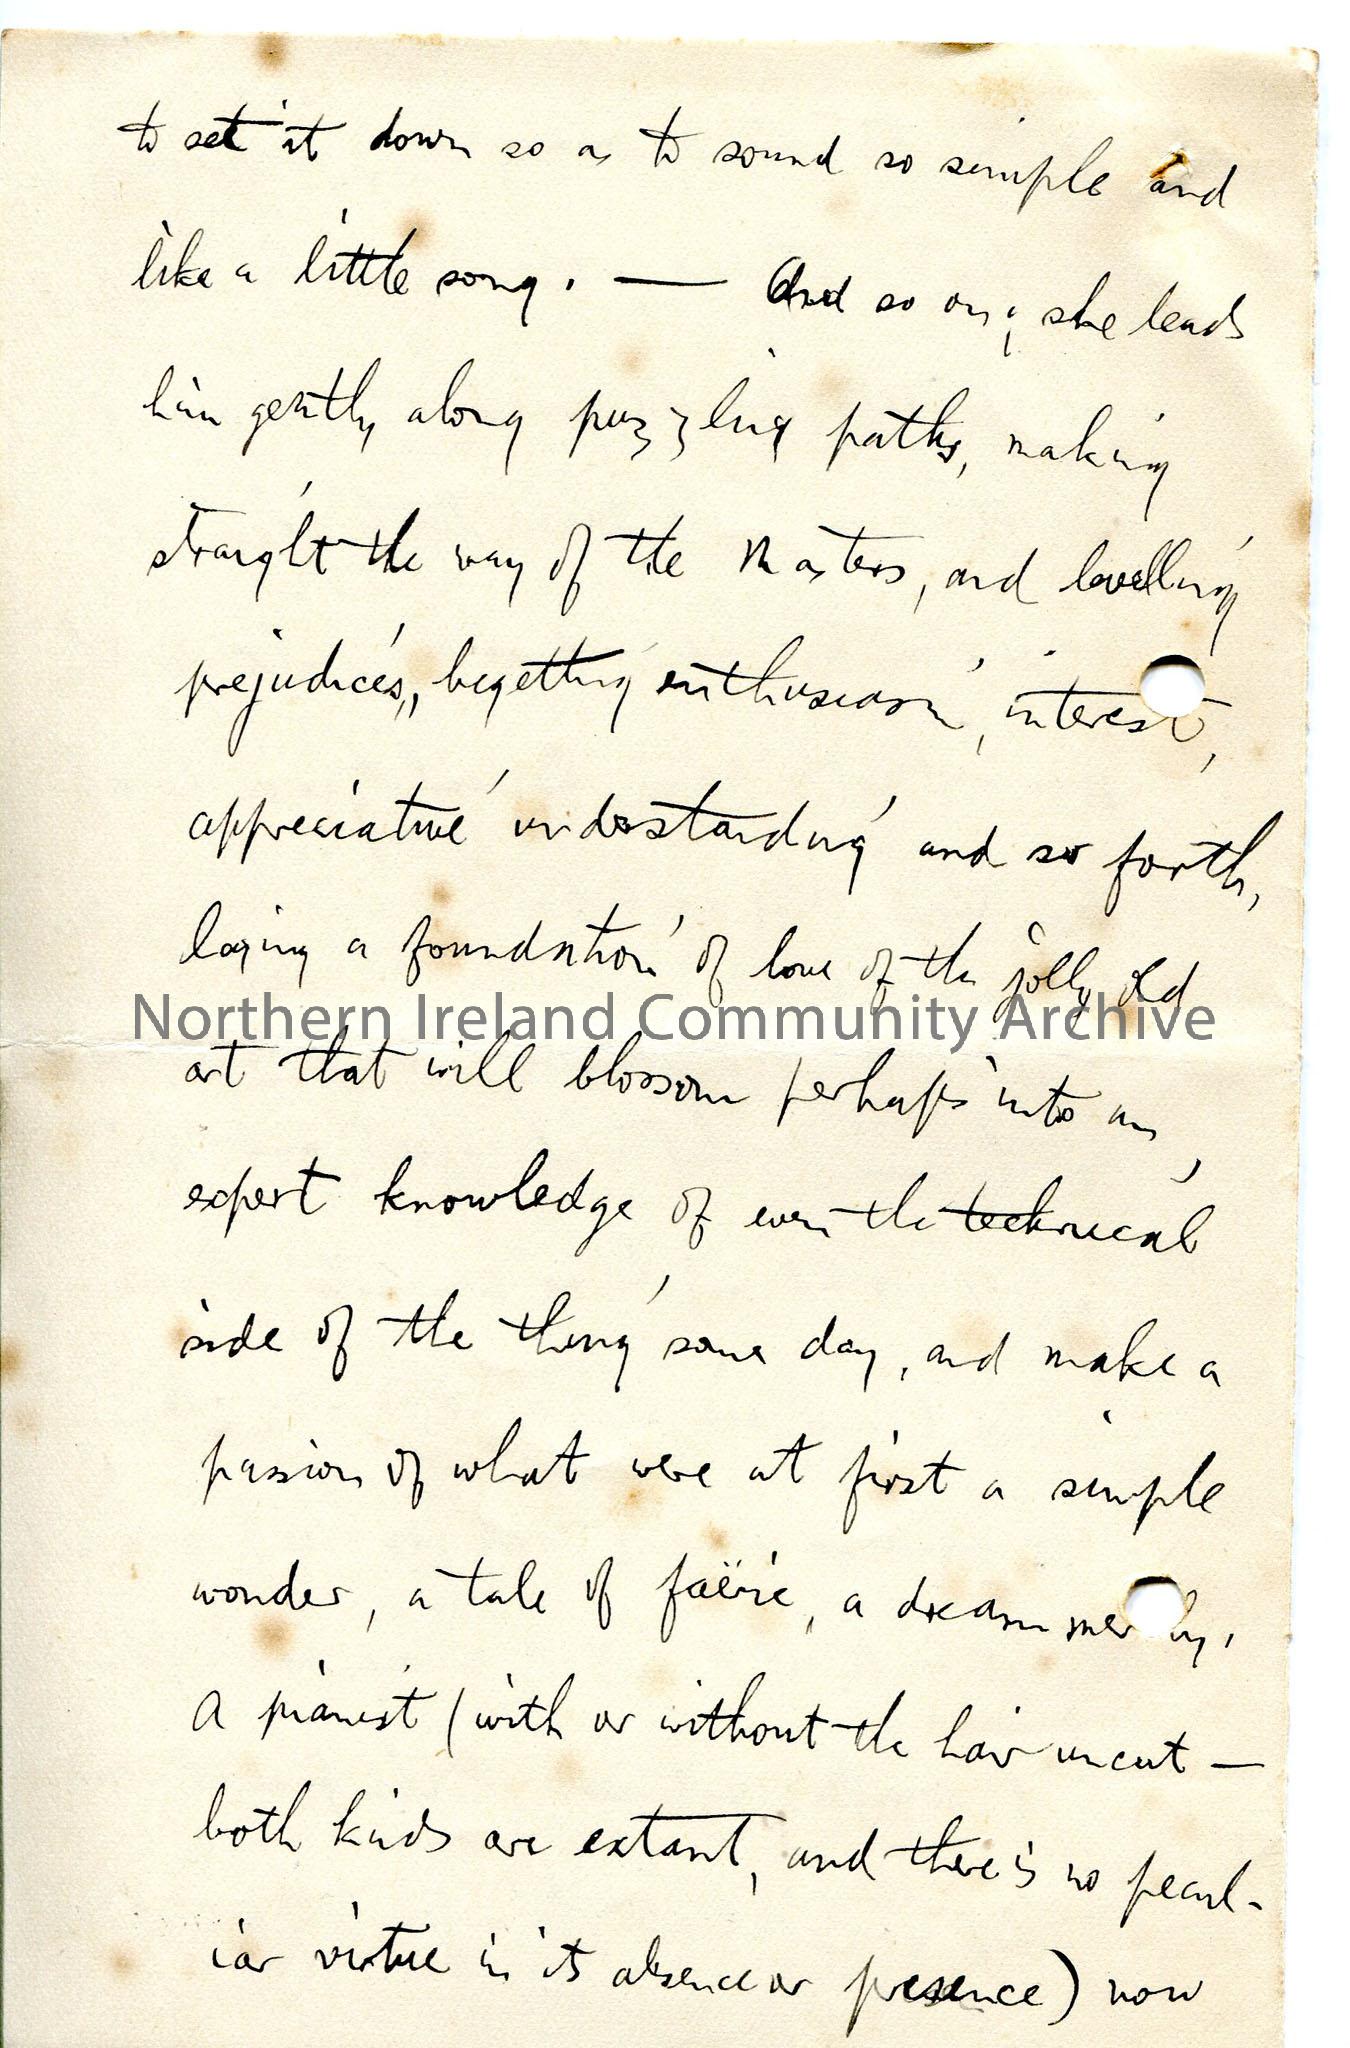 to set it down so as to sound so simple and
like a little song. — And so on; she leads
him gently along puzzling paths, making
straight the way of the Masters, and levelling
prejudices, begetting enthusiasm, interest,
appreciative understanding and so forth,
laying a foundation of love of the jolly old
Northern Ireland Community Archive
art that will blossom perhaps into an
expert knowledge of even the technical
side of the thing some day, and make a
passion of what were at first a simple
wonder, a tale of faërie, a dream merely.
A pianist (with or without the hair uncut —
both kinds are extant, and there is no pecul-
iar virtue in its absence or presence) now